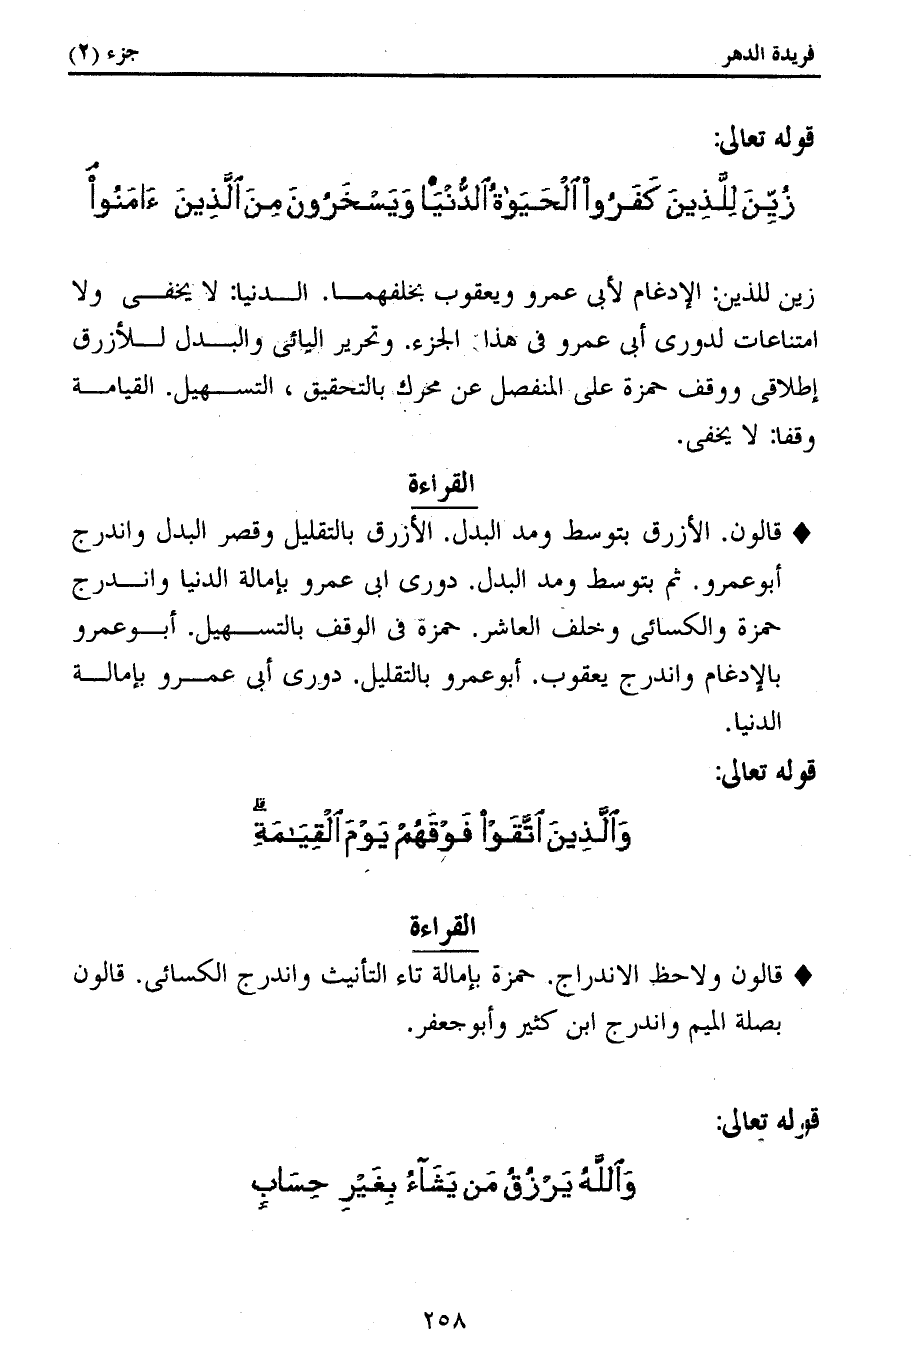 فريدة الدهر
جزء (٢)
قوله تعالى:
زُيِّنَ لِلَّذِينَ كَفَرُوا۟ ٱلْحَيَوٰةُ ٱلدُّنْيَا وَيَسْخَرُونَ مِنَ ٱلَّذِينَ ءَامَنُوا۟ ۘ
زين للذين: الإدغام لأبى عمرو ويعقوب بخلفهمـــا. الـــدنيا: لا يخفـــى ولا
امتناعات لدورى أبى عمرو فى هذا الجزء. وتحرير اليائى والبـــدل لـــلأزرق
إطلاقى ووقف حمزة على المنفصل عن محرك بالتحقيق ، التســـهيل. القيامـــة
وقفا: لا يخفى.
القراءة
♦ قالون. الأزرق بتوسط ومد البدل. الأزرق بالتقليل وقصر البدل واندرج
أبوعمرو. ثم بتوسط ومد البدل. دورى ابى عمرو بإمالة الدنيا وانـــدرج
حمزة والكسائى وخلف العاشر. حمزة فى الوقف بالتســـهيل. أبـــوعمرو
بالإدغام واندرج يعقوب. أبوعمرو بالتقليل. دورى أبى عمـــرو بإمالـــة
الدنيا.
قوله تعالى:
وَٱلَّذِينَ ٱتَّقَوْا۟ فَوْقَهُمْ يَوْمَ ٱلْقِيَـٰمَةِ ۗ
القراءة
♦ قالون ولاحظ الاندراج. حمزة بإمالة تاء التأنيث واندرج الكسائى. قالون
بصلة الميم واندرج ابن كثير وأبوجعفر.
قوله تعالى:
وَٱللَّهُ يَرْزُقُ مَن يَشَآءُ بِغَيْرِ حِسَابٍ
٢٥٨